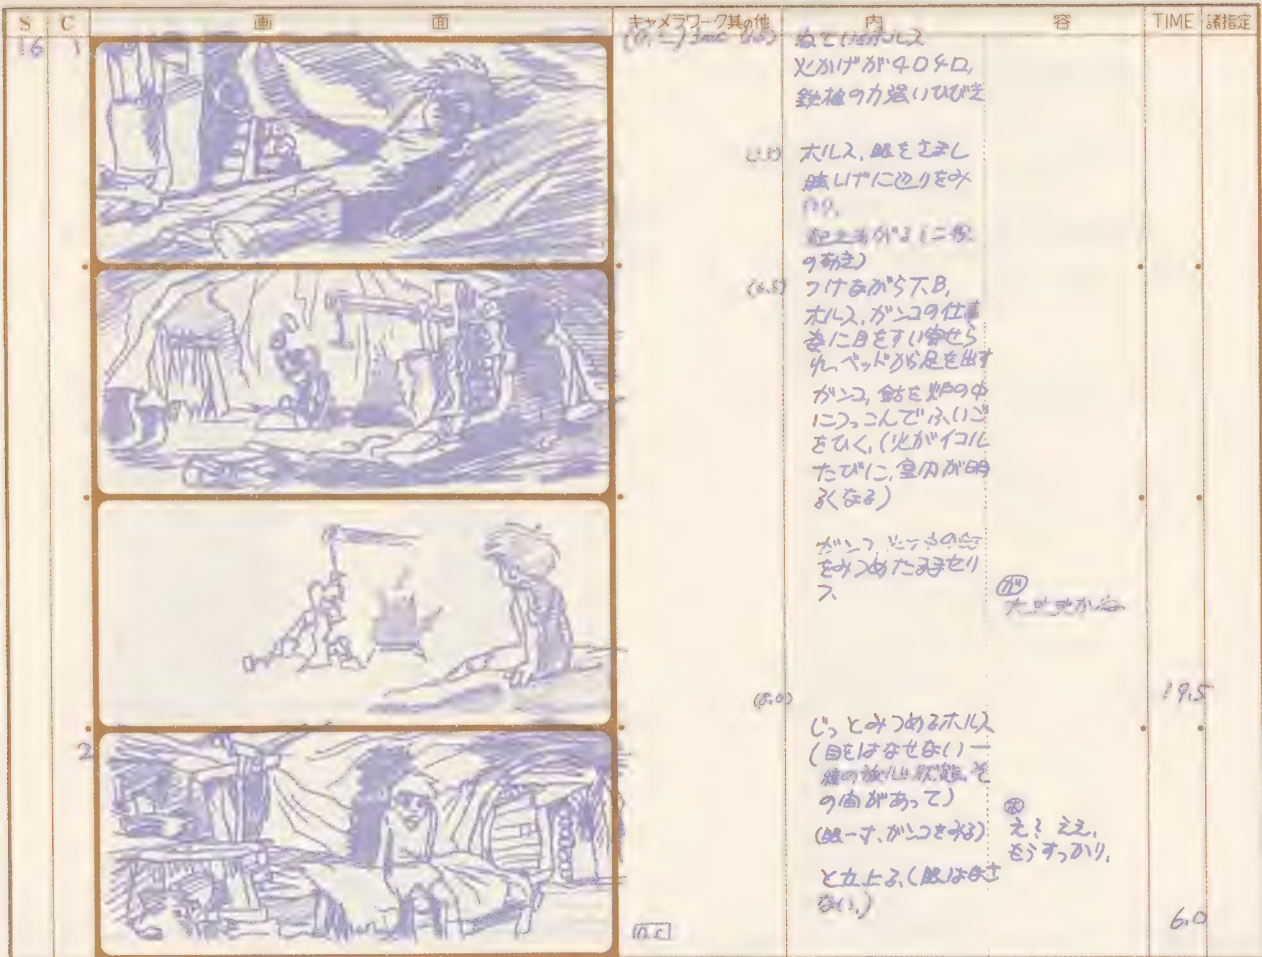 S C 画 面 キャメラワーク其の他 内 容 TIME 諸指定
16 1
ホルス
火かげがチロチロ、
鉄槌の力強いひびき
ホルス、眼をさまし
眩しげに辺りをみ
起き上がる(二段
の動き)
(6.5)
つけながらT.B.
ホルス、ガンコの仕事
姿に目をすい寄せら
れ、ベッドから足を出す
ガンコ、鉛を炉の中
につっこんでふいご
をひく、(火がイコル
たびに、室内が明
るくなる)
ガンコ
をみつめたままセリ
フ、
ガ
大丈夫か
(8.0)
19.5
2
じっとみつめるホルス
(目をはなせない一
種の放心状態、そ
の間があって)
(眼一寸、ガンコをみる)
と立上る、(眼は
ない、)
ホ
え? ええ、
もうすっかり、
6.0